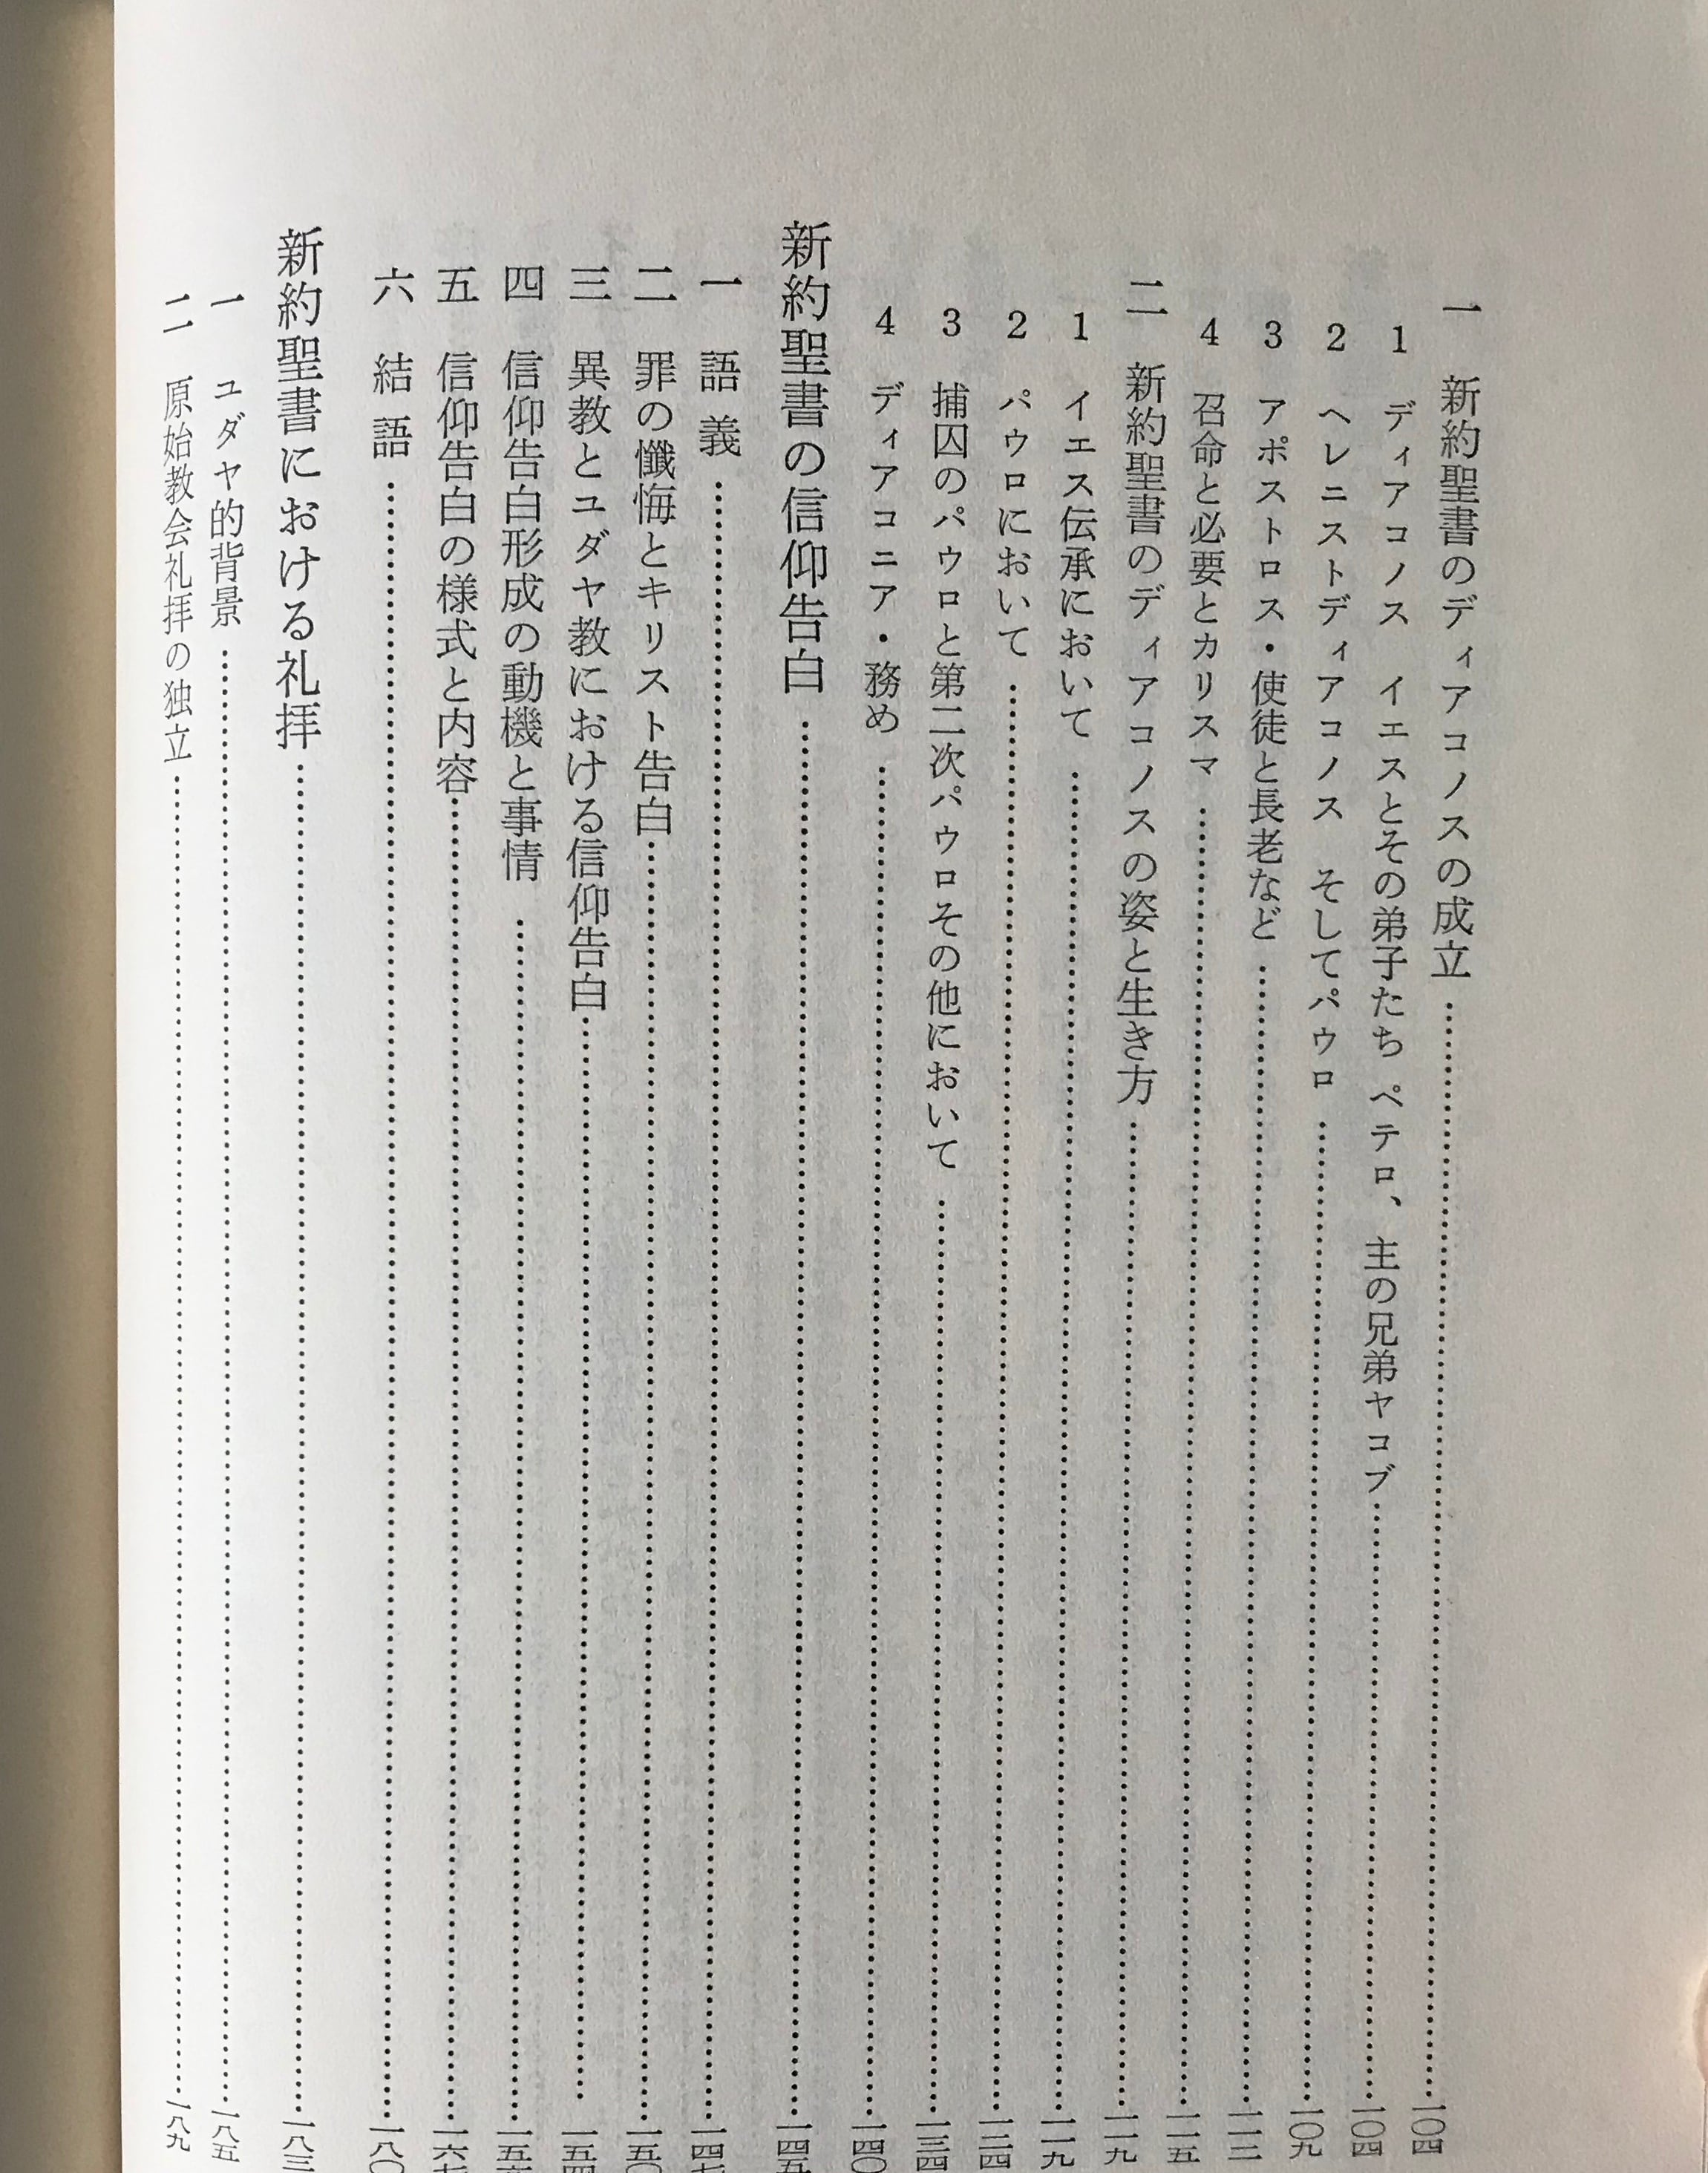 一　新約聖書のディアコノスの成立……一〇四
1　ディアコノス　イエスとその弟子たち　ペテロ、主の兄弟ヤコブ……一〇四
2　ヘレニストディアコノス　そしてパウロ……一〇九
3　アポストロス・使徒と長老など……一一二
4　召命と必要とカリスマ……一一五
二　新約聖書のディアコノスの姿と生き方……一一九
1　イエス伝承において……一一九
2　パウロにおいて……一二四
3　捕囚のパウロと第二次パウロその他において……一三四
4　ディアコニア・務め……一四〇
新約聖書の信仰告白……一四五
一　語義……一四七
二　罪の懺悔とキリスト告白……一五〇
三　異教とユダヤ教における信仰告白……一五四
四　信仰告白形成の動機と事情……
五　信仰告白の様式と内容……一六七
六　結語……一八〇
新約聖書における礼拝……一八三
一　ユダヤ的背景……一八五
二　原始教会礼拝の独立……一八九